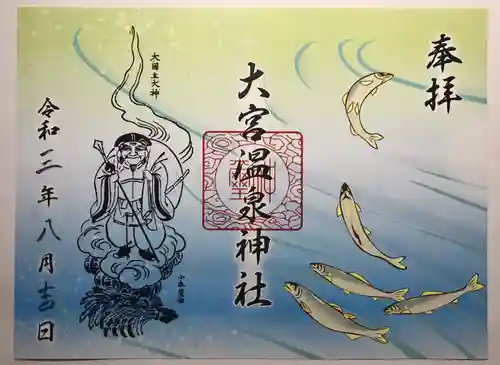 奉拝
大宮温泉神社
大國主大神
令和三年八月吉日